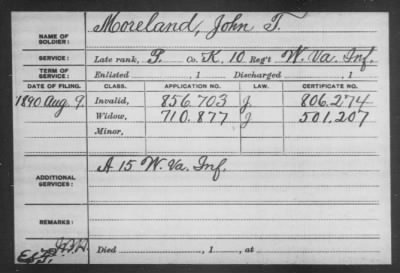 NAME OF SOLDIER: Moreland, John T.
SERVICE: Late rank, P. Co. K, 10 Reg't W. Va. Inf.
TERM OF SERVICE: Enlisted , 1 Discharged , 1
DATE OF FILING. CLASS. APPLICATION NO. LAW. CERTIFICATE NO.
1890 Aug. 9. Invalid, 856.703 J 806.274
Widow, 710.877 J 501,207
Minor,
ADDITIONAL SERVICES: A 15 W. Va. Inf.
REMARKS:
Died , 1 , at